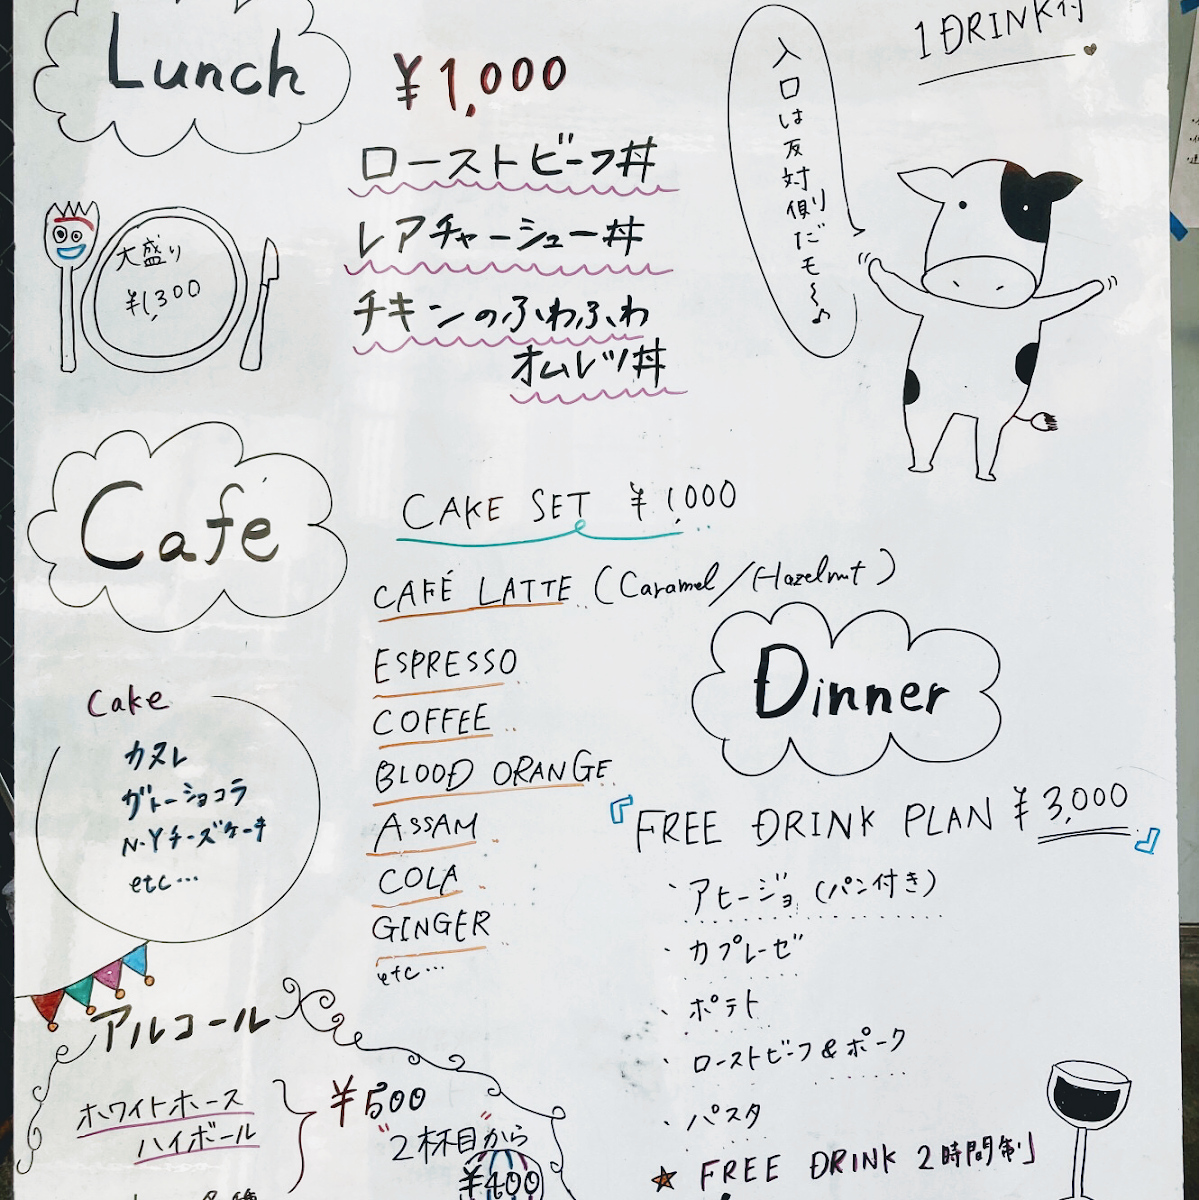 Lunch
¥1,000
ローストビーフ丼
レアチャーシュー丼
チキンのふわふわ
オムレツ丼
大盛り
¥1,300
1 DRINK付
入口は反対側だモ〜♪
Café
CAKE SET ¥1,000
CAFÉ LATTE (Caramel/Hazelnut)
ESPRESSO
COFFEE
BLOOD ORANGE
ASSAM
COLA
GINGER
etc…
Cake
カヌレ
ガトーショコラ
N・Yチーズケーキ
etc…
Dinner
『FREE DRINK PLAN ¥3,000』
・アヒージョ(パン付き)
・カプレーゼ
・ポテト
・ローストビーフ&ポーク
・パスタ
★ FREE DRINK 2時間制
アルコール
ホワイトホース
ハイボール
¥500
"2杯目から"
¥400